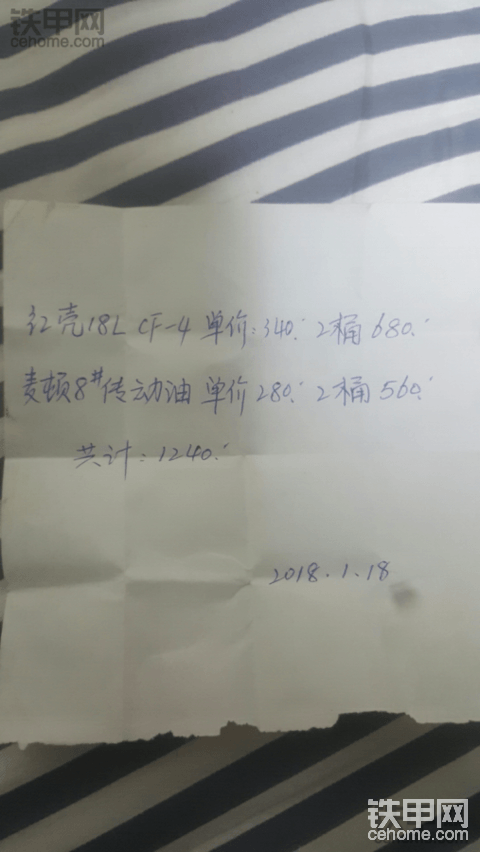 铁甲网
cehome.com
红壳18L CF-4 单价:340.- 2桶 680.-
麦顿8#传动油 单价280.- 2桶 560.-
共计:1240.-
2018.1.18
铁甲网
cehome.com